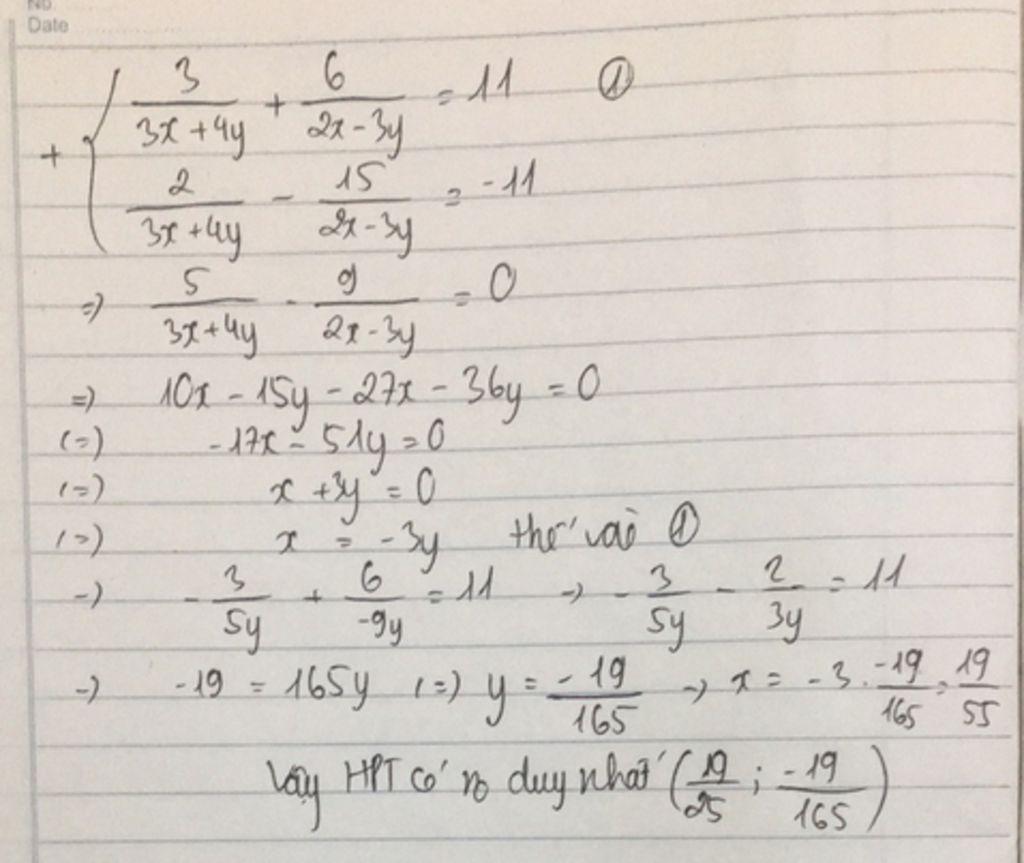 No
Date
+ { 3/(3x+4y) + 6/(2x-3y) = 11 ①
2/(3x+4y) - 15/(2x-3y) = -11
=) 5/(3x+4y) - 9/(2x-3y) = 0
=) 10x - 15y - 27x - 36y = 0
(=) -17x - 51y = 0
(=) x + 3y = 0
(=) x = -3y thế vào ①
-) -3/5y + 6/-9y = 11 -) -3/5y - 2/3y = 11
-) -19 = 165y (=) y = -19/165 -) x = -3 . -19/165 = 19/55
Vậy HPT có no duy nhất (19/25 ; -19/165)